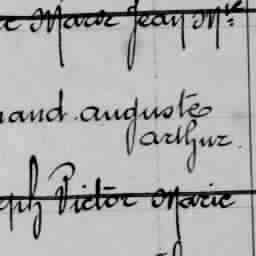 Marie Jean M
and Auguste
Arthur.
eph Victor Marie